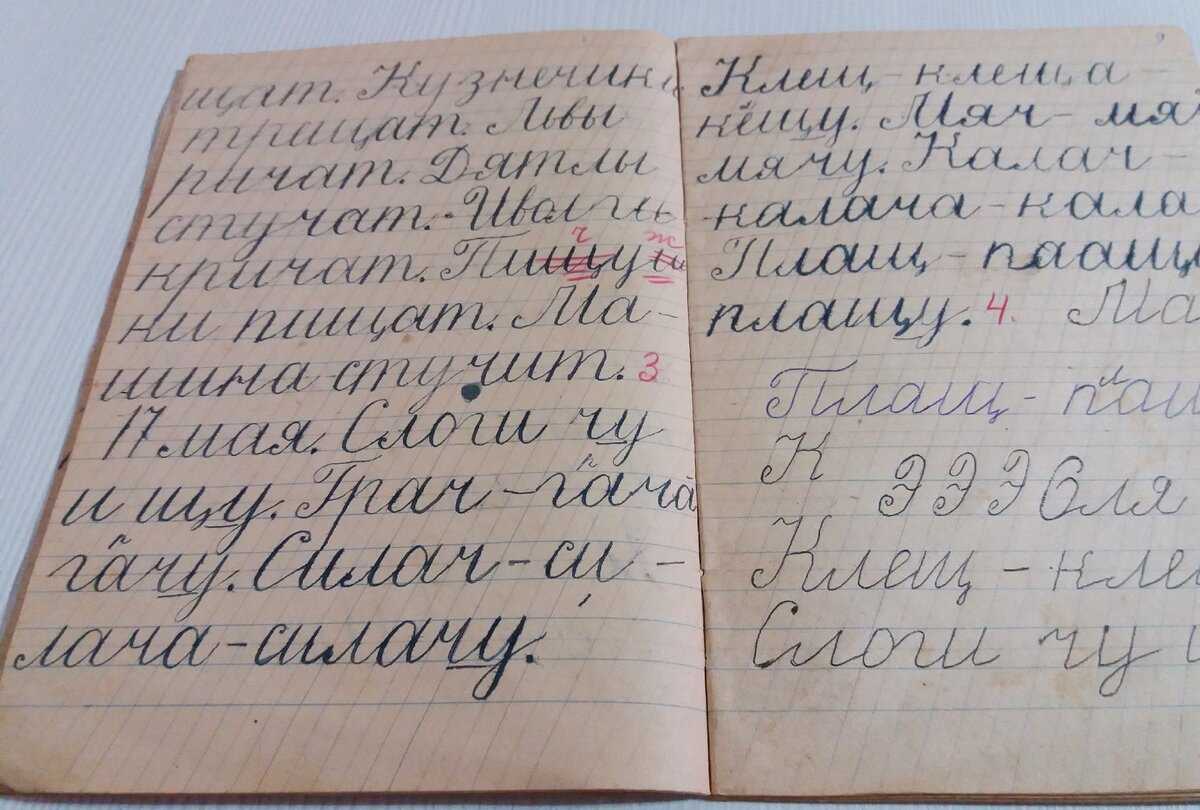 щат. Кузнечики
трещат. Львы
ричат. Дятлы
стучат. Иволги
кричат. Пищуш
ч ж
ки пищат. Ма-
шина стучит. 3
17 мая. Слоги чу
и щу. Грач - гача
гачу. Силач - си-
лача - силачу.
Клещ - клеща -
кещу. Мяч - мя
мячу. Калач -
калача - кала
Плащ - плаща
плащу. 4. Ма
Плащ - пащ
К ЭЭЭ Оля
Клещ - кле
Слоги чу и